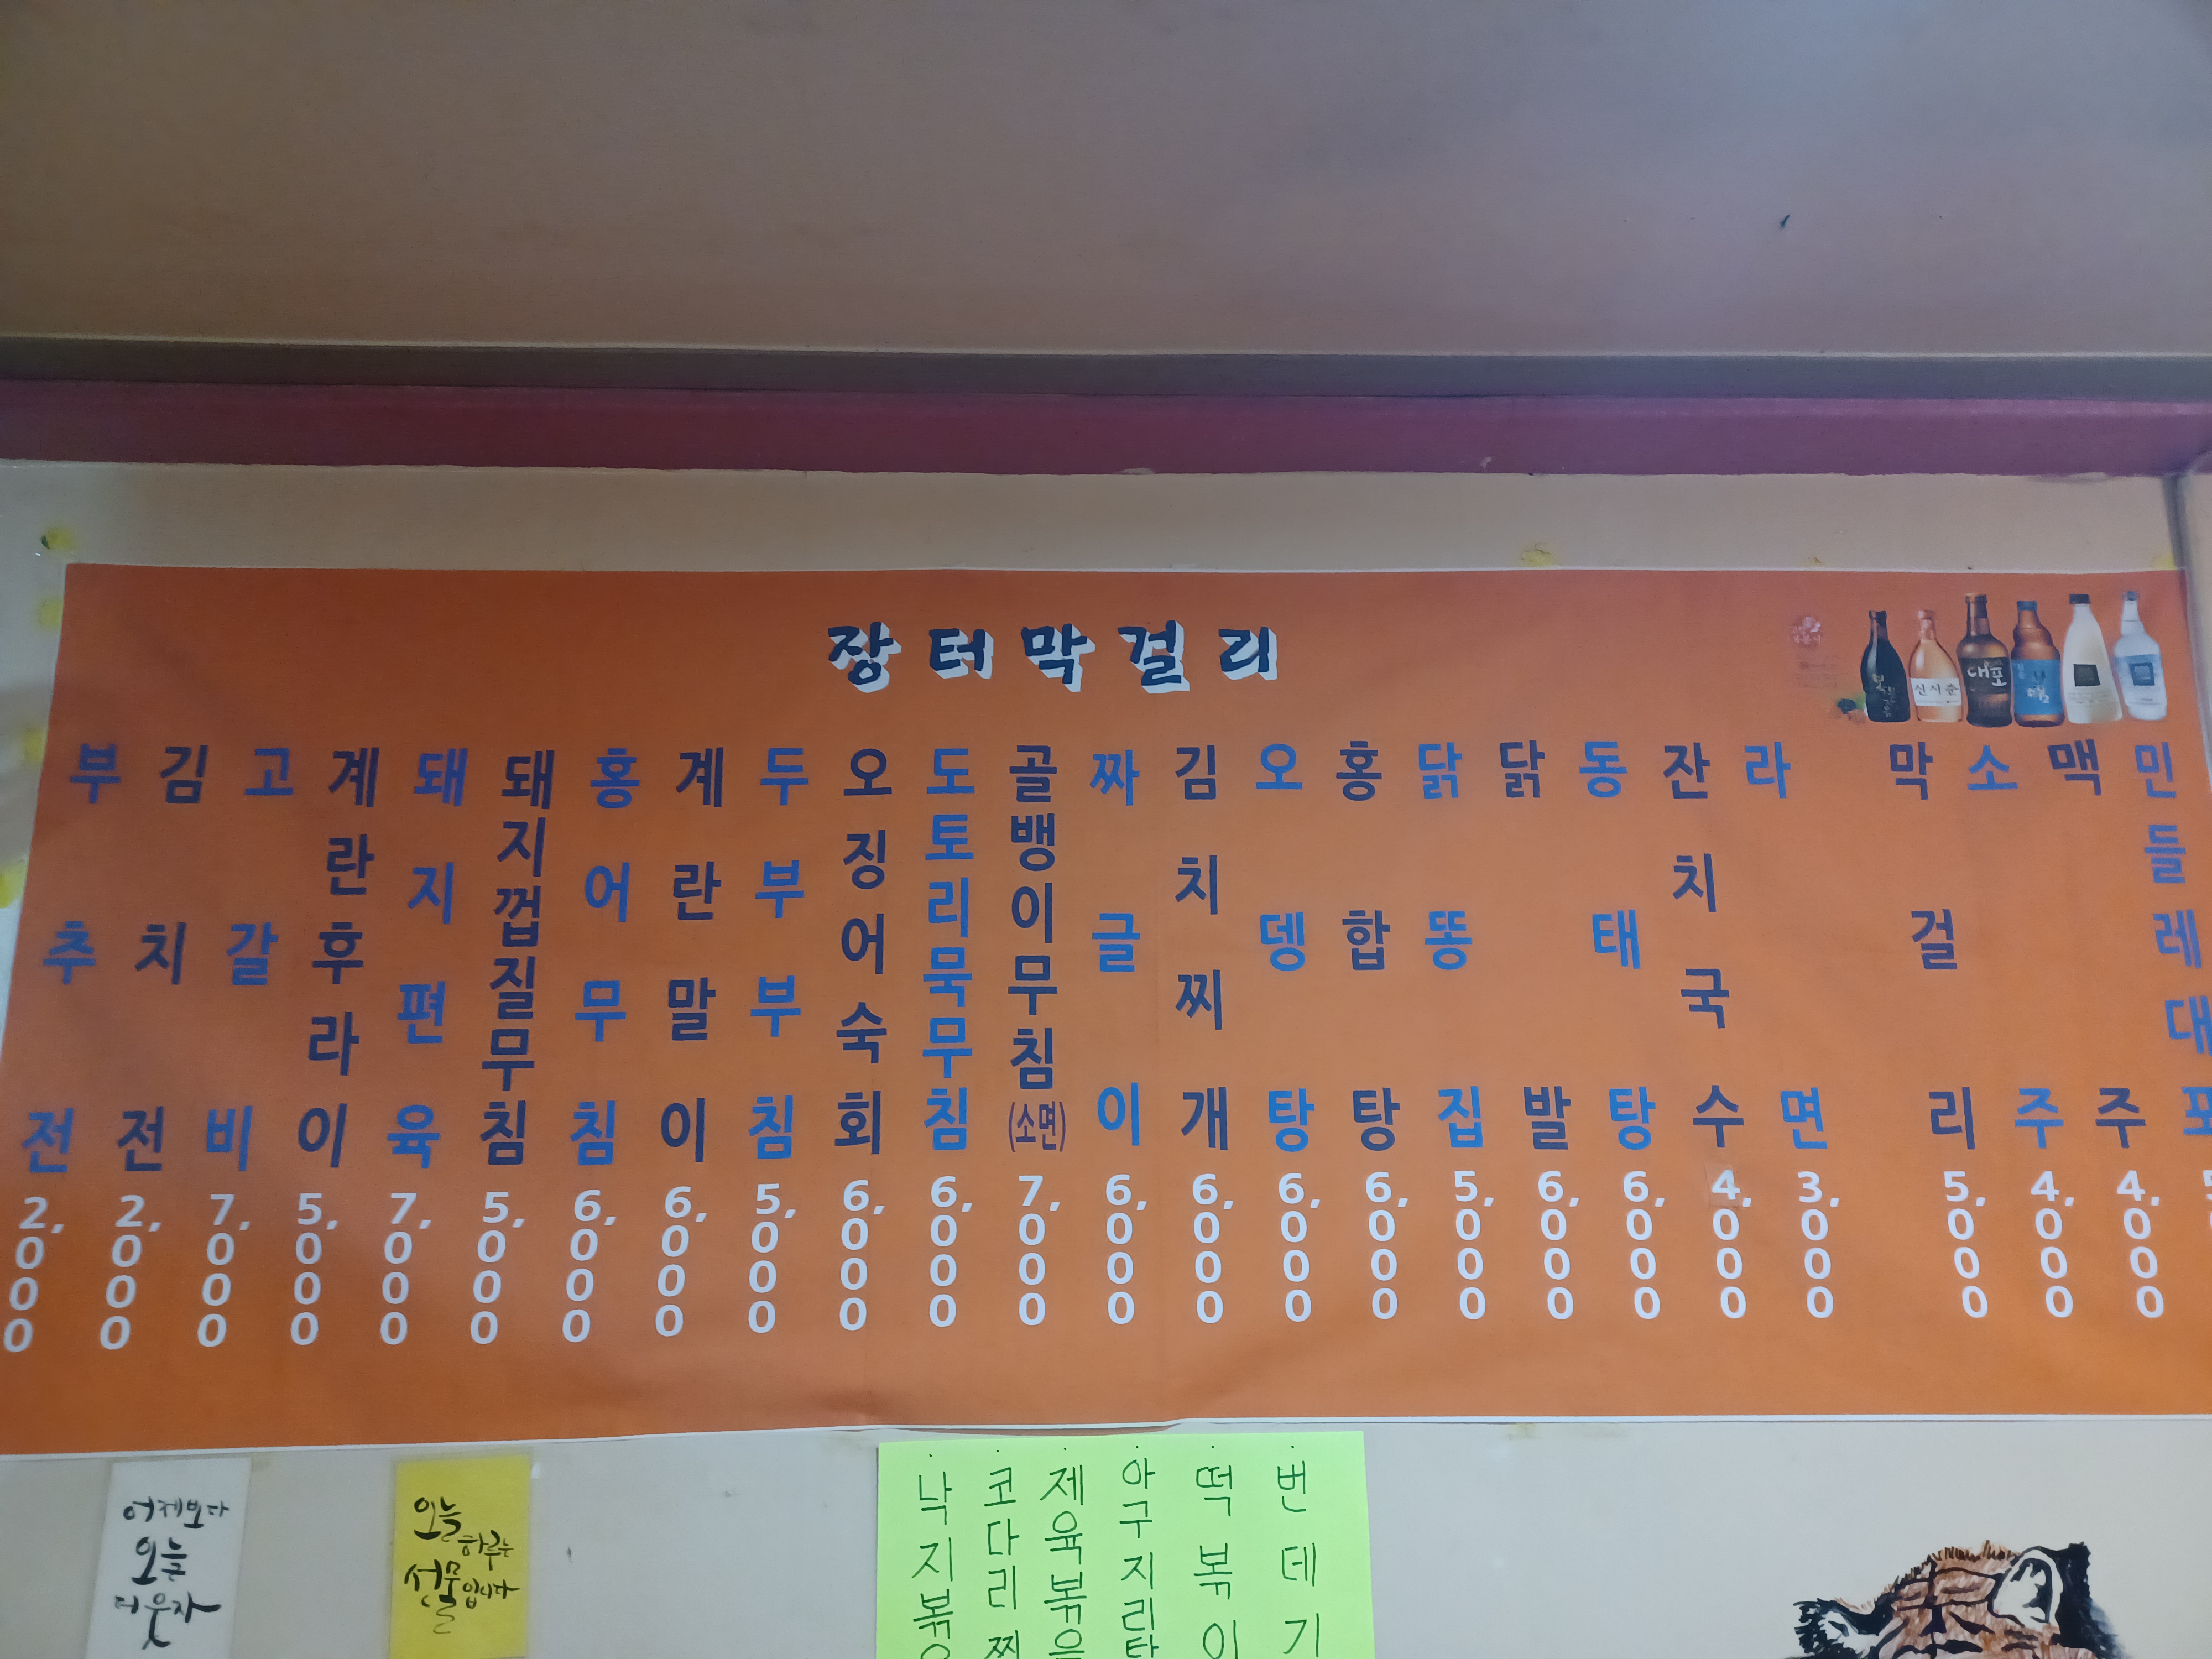 장터막걸리
대포
신시춘
부추전 2,000
김치전 2,000
고갈비 7,000
계란후라이 5,000
돼지편육 7,000
돼지껍질무침 5,000
홍어무침 6,000
계란말이 6,000
두부부침 5,000
오징어숙회 6,000
도토리묵무침 6,000
골뱅이무침(소면) 7,000
짜글이 6,000
김치찌개 6,000
오뎅탕 6,000
홍합탕 6,000
닭똥집 5,000
닭발 6,000
동태탕 6,000
잔치국수 4,000
라면 3,000
막걸리 5,000
소주 4,000
맥주 4,000
민들레대포
어제보다
오늘
더 웃자
오늘
하루는
선물입니다
· 낙지볶
· 코다리찌
· 제육볶음
· 아구지리탕
· 떡볶이
· 번데기